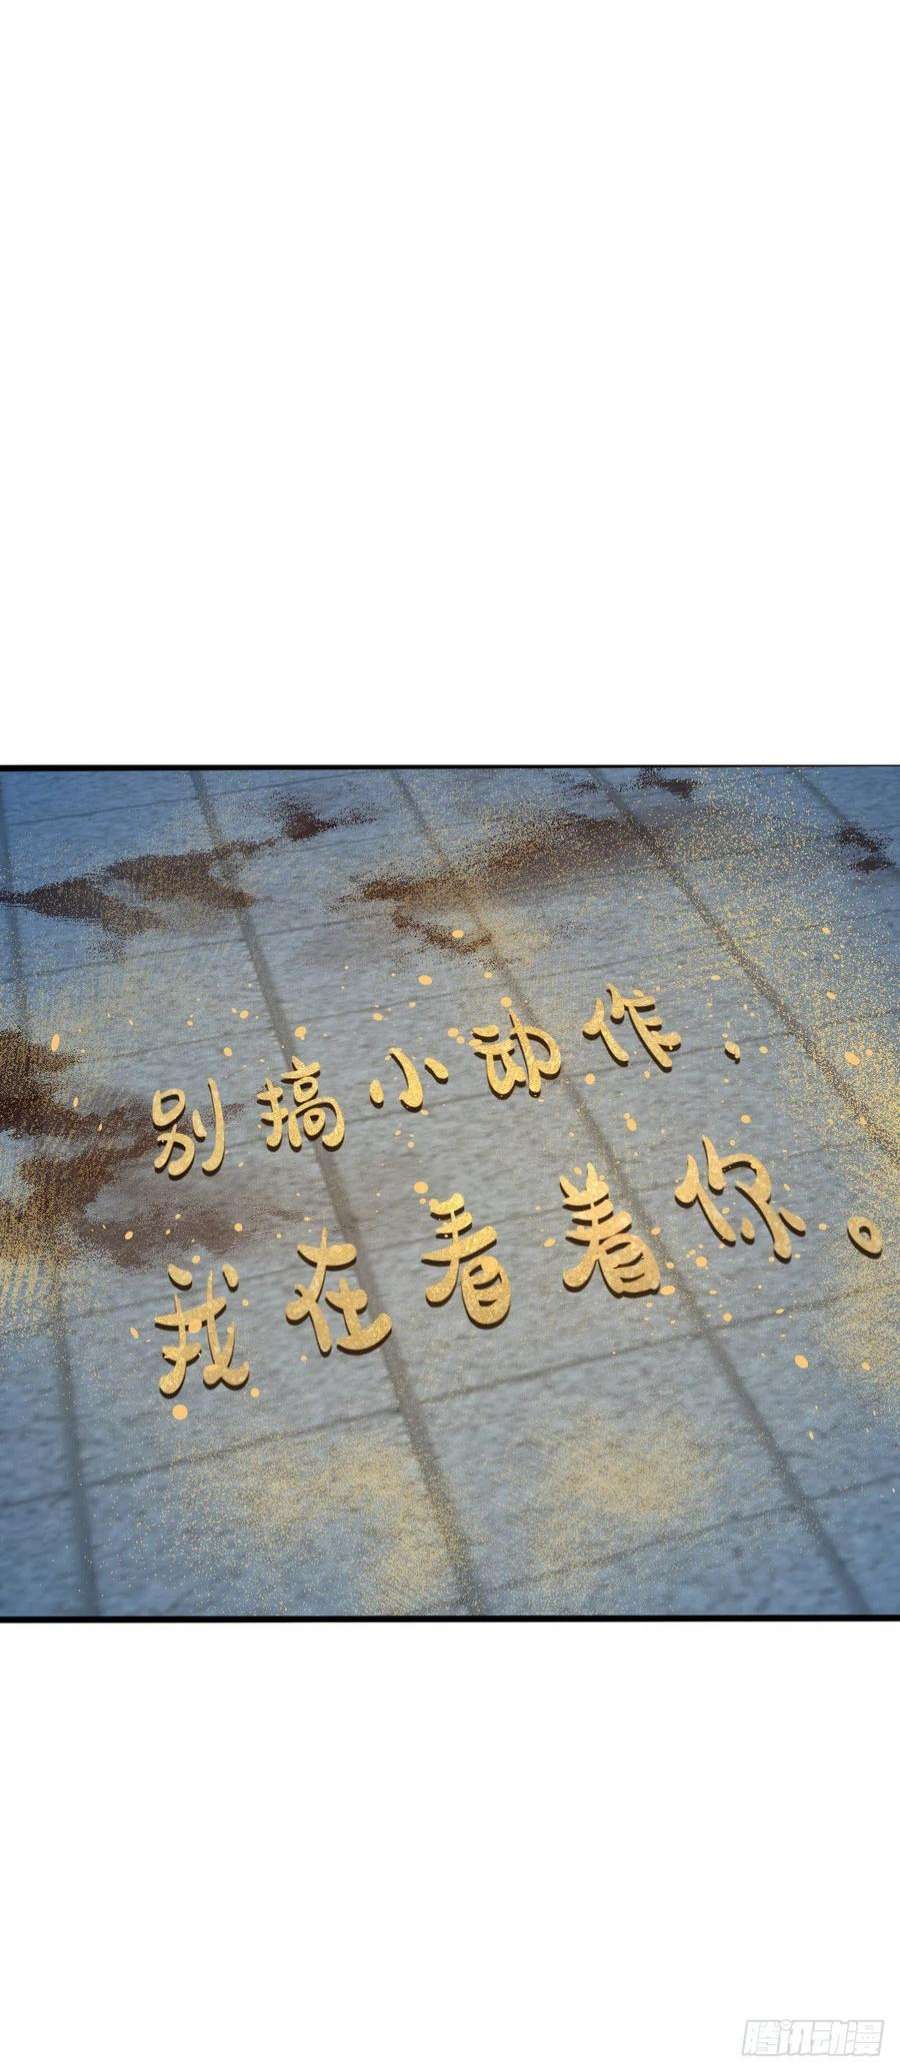 别搞小动作，
我在看着你。
腾讯动漫